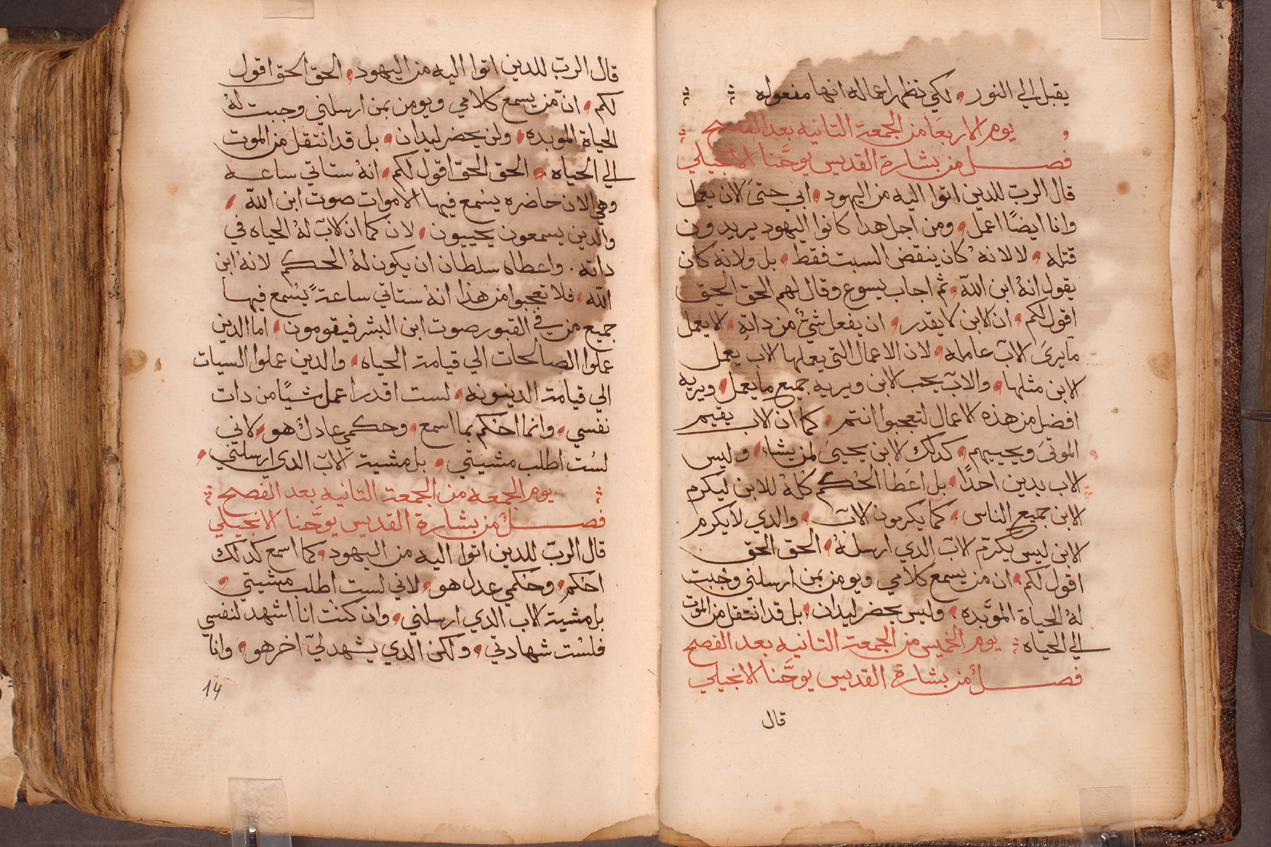 يقبل الي النور، لكي تظهر اعماله انها مفعوله
يوم الاربعا من الجمعة الثانيه بعد الفصح
فصل من بشارة القديس يوحَّنا الانجيلي
قال الربّ للدين اتوا اليه من اليهود، ابي حتىَ الان يعمل
وانا ايضًا اعمل، ومن اجل هدا كانوا اليهود يريدون
قتله، لا لانه كان ينقض السبت فقط، بل ولانه كان
يقول انهُ ابن اللّه، ثم اجاب يسوع وقال لهم الحق الحق
اقول لكم، ان الابن لا يقدر، ان يفعل شيُ من داته، لا يعمل
ما يرىَ الاب عامله، لان الاعمال التى يعملها الاب يعمل
الابن مثلها، والاب يحب الابن ويريه جميع ما يعمل، ويريه
افضل من هذه الاعمال لتعجبوا انتم، كما ان الاب يقيم
الموتى ويحييهم، كدلك الابن يحيي لمن يشا، وليس
الاب يدين احدًا، بل اعطا الحُكم كلهُ للابن ليكرم
الابن جميع الناس، كما يكرمون الاب، والدي لا يكرم
الابن ليس يكرّم الاب الدي ارسله، الحق الحق
اقول لكم، ان من يسمع كلامي ويومن بمن ارسلني وجبت
لهُ الحياة الموَبده، وليس يحضر ليدان، بل قد انتقل من الموت
الي الحياه، يوم الخميس من الجمعة الثانيه بعد الفصح
فصل من بشارة القديس يوحَّنا الانجيلي
قال
قال الربّ للدين اتوا اليه من اليهود، الحق الحق اقول
لكم، انّ من يسمع كلامي ويومن بمن ارسلني وجبت لهُ
الحياة الموبده، ولن يحضر ليدان، بل قد انتقل من الموت
الي الحياه، الحق الحق اقول لكم، انهُ ستاتي ساعة
وهي الان حاضره يسمع فيها الاموات صوت ابن اللّه،
والدين يسمعون يحييون، لان كما ان الاب لهُ الحياه في
داته. واعطاه سلطان ان يكون لهُ الحكم لانهُ ابن
اللّه، فلا تعجبوا من هذا انهُ ستاتي ساعةً يُسمع فيها
جميع من في القبور صوت ابن البشر فيقومون، اما الدين
عملوا الصالحات الي قيامة الحياه، والدين عملوا السيات
الي قيامة الدينونه، لست اقدر اعمل شيًا من دات
نفسي، وانما احكم بما اسمع، وحكمي عادلُ هو، لاني
لسُت اطلب مشيتي، بل مشية الاب الدي ارسلني،
يوم الجمعه من الجمعة الثانيه بعد الفصح
فصل من بشارة القديس يوحَّنا الانجيلي
قال الربّ للدين اتوا اليه من اليهود، كما اسمع كدلك
احكم، وحكمي عدل هو، لاني لست اطلب مشيتي،
بل مشية الاب الدي ارسلني، وان كنت انا اشهد لنفسي
فلسُت شهادتي، ولكن الدي يشهد لي اخر هو، وانا
14